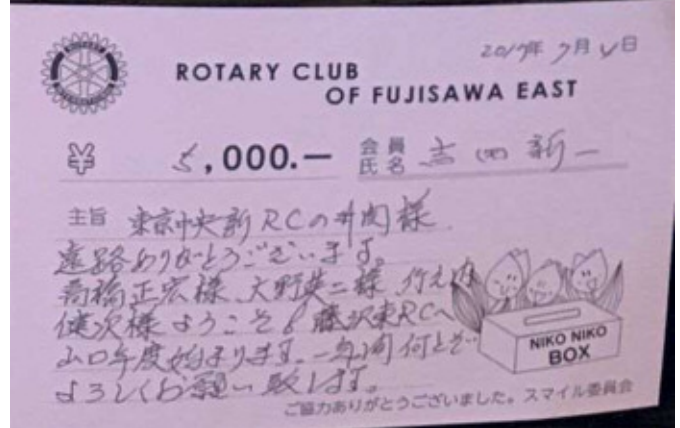 2017年7月4日
ROTARY CLUB
OF FUJISAWA EAST
¥ 5,000.—
会員
氏名 吉田新一
主旨 東京中央新RCの井関様
遠路ありがとうございます。
髙橋正宏様、大野英二様、竹之内
健次様ようこそ藤沢東RCへ
山口年度始まります。一年間何とぞ
よろしくお願い致します。
NIKO NIKO
BOX
ご協力ありがとうございました。スマイル委員会